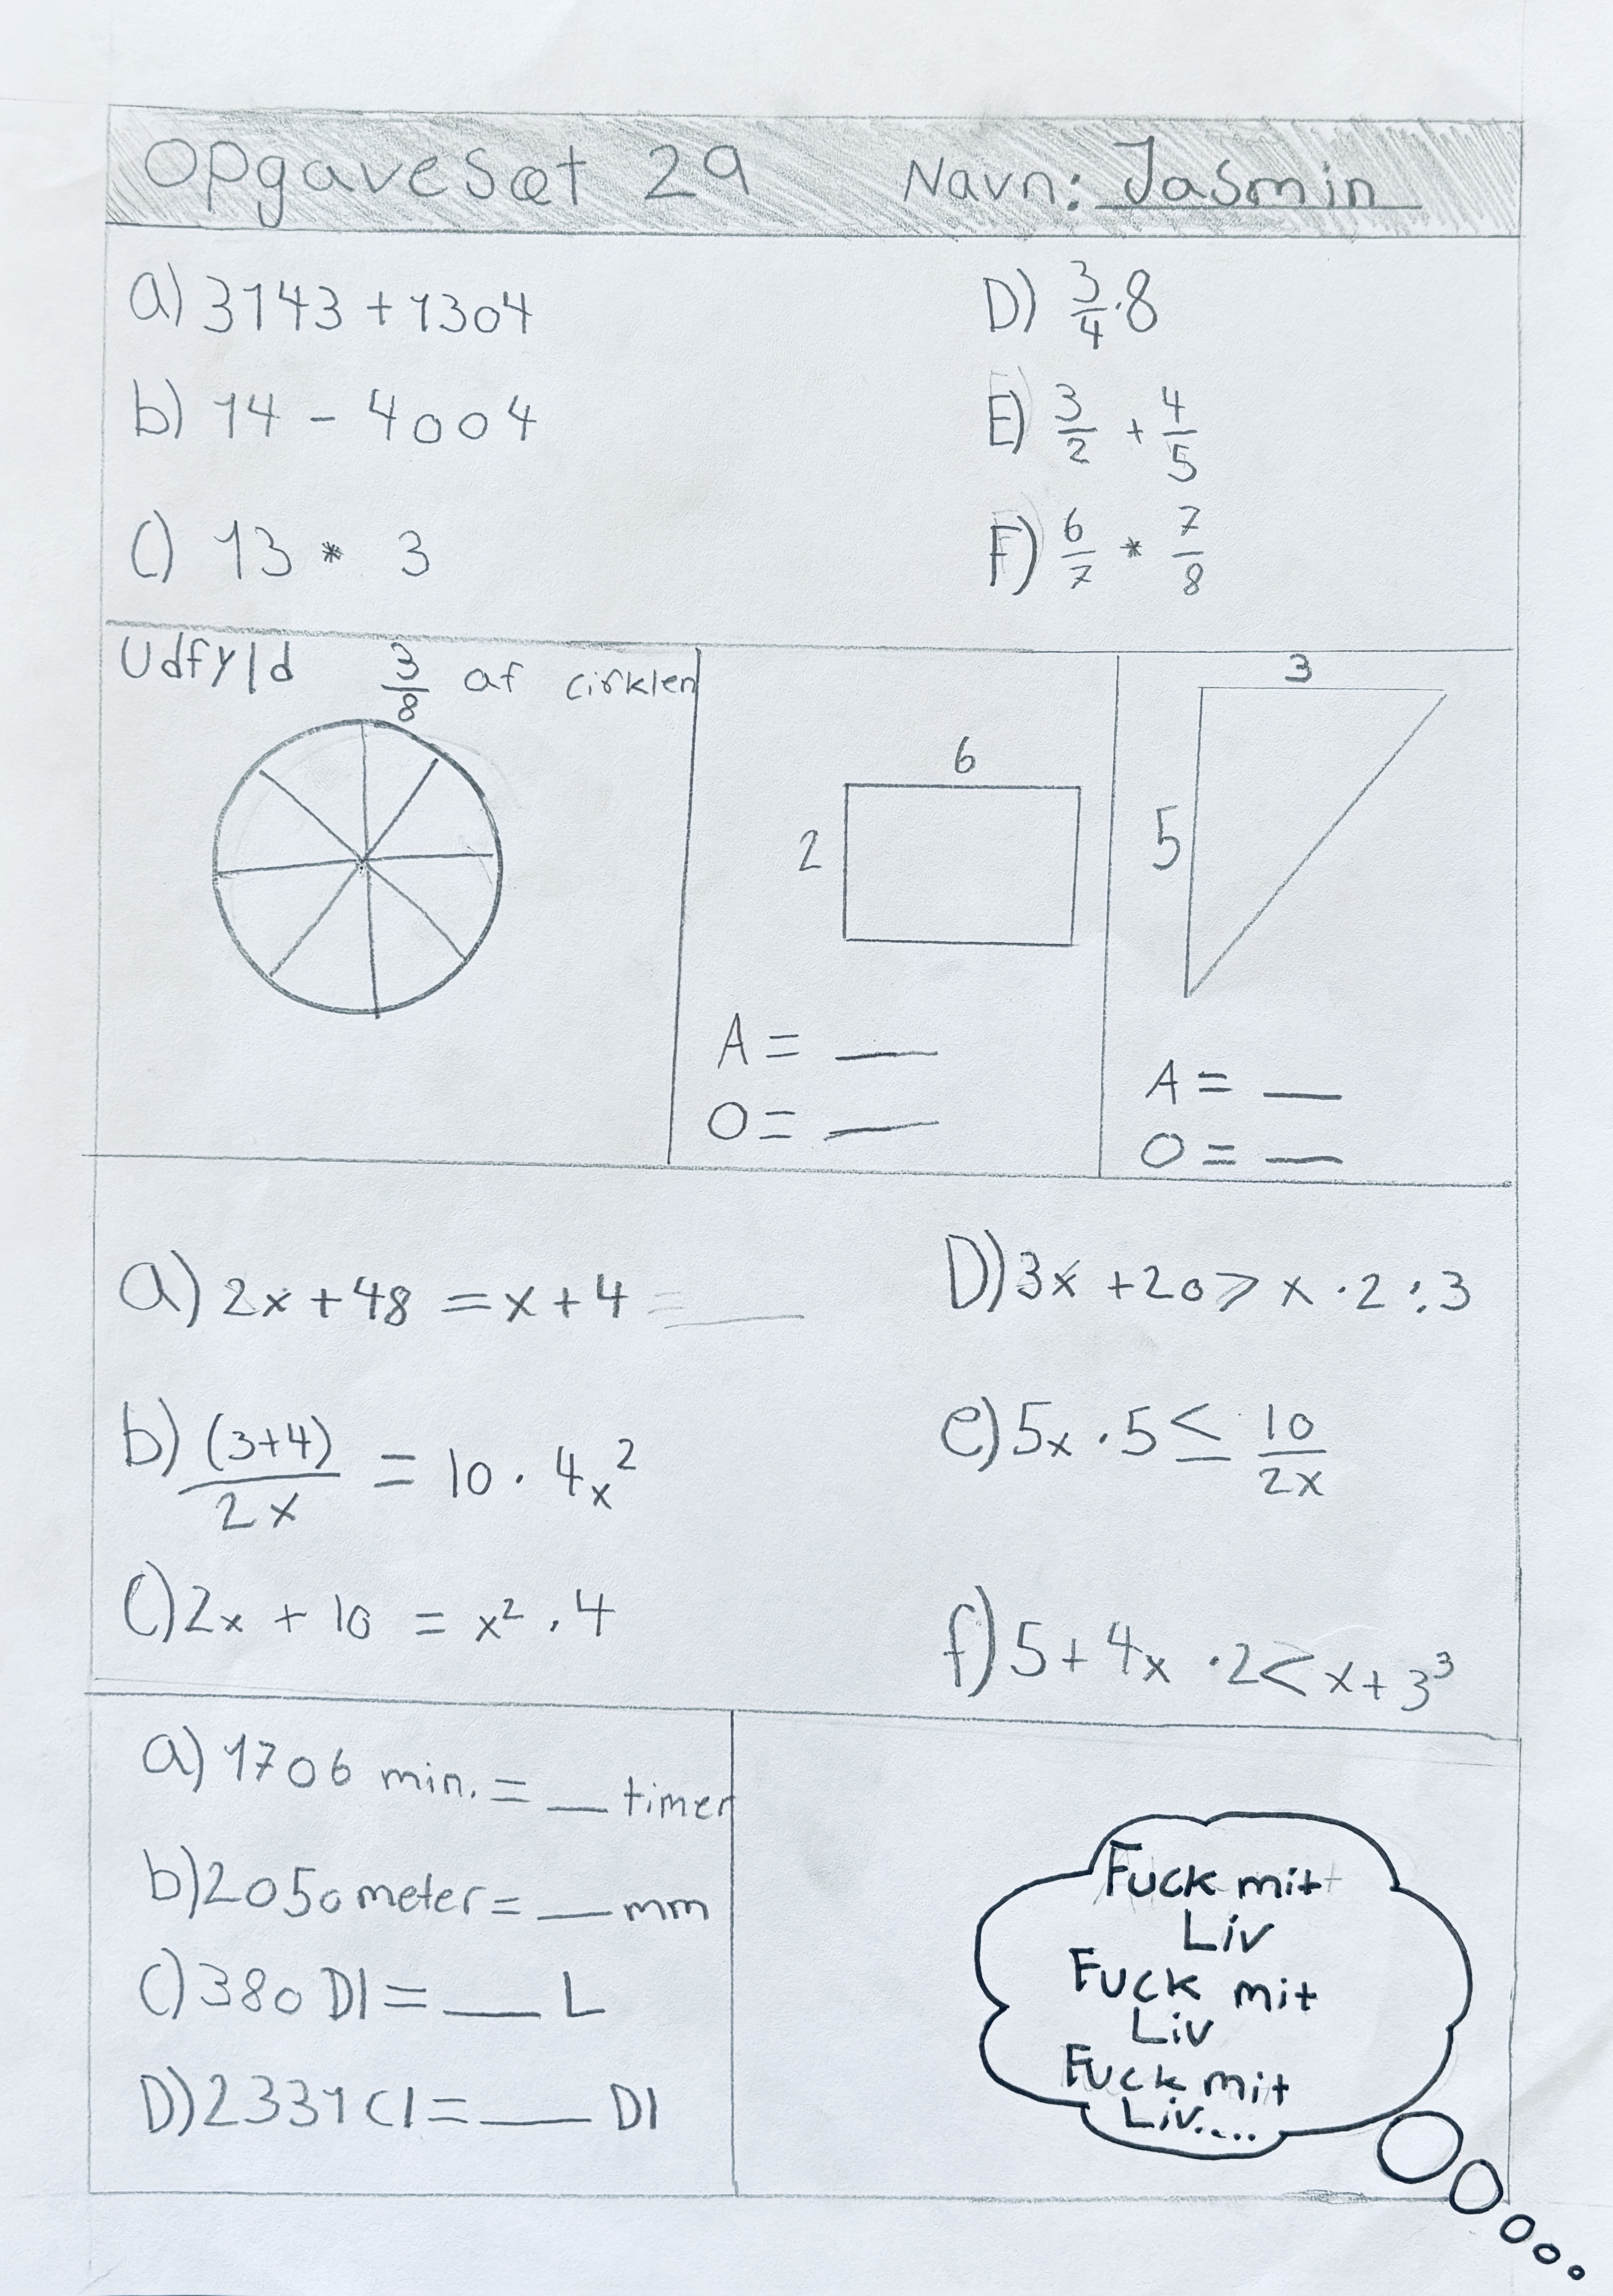 Opgavesæt 29 Navn: Jasmin
a) 3143 + 1304
b) 14 - 4004
c) 13 * 3
D) 3/4 · 8
E) 3/2 + 4/5
F) 6/7 * 7/8
Udfyld 3/8 af cirklen
6
2
A = __
O = __
3
5
A = __
O = __
a) 2x + 48 = x + 4 = __
b) (3+4)/2x = 10 · 4x²
c) 2x + 10 = x² · 4
D) 3x + 20 > x · 2 : 3
e) 5x · 5 ≤ 10/2x
f) 5 + 4x · 2 < x + 3³
a) 1706 min. = __ timer
b) 2050 meter = __ mm
c) 380 Dl = __ L
D) 2331 Cl = __ Dl
Fuck mit
Liv
Fuck mit
Liv
Fuck mit
Liv....